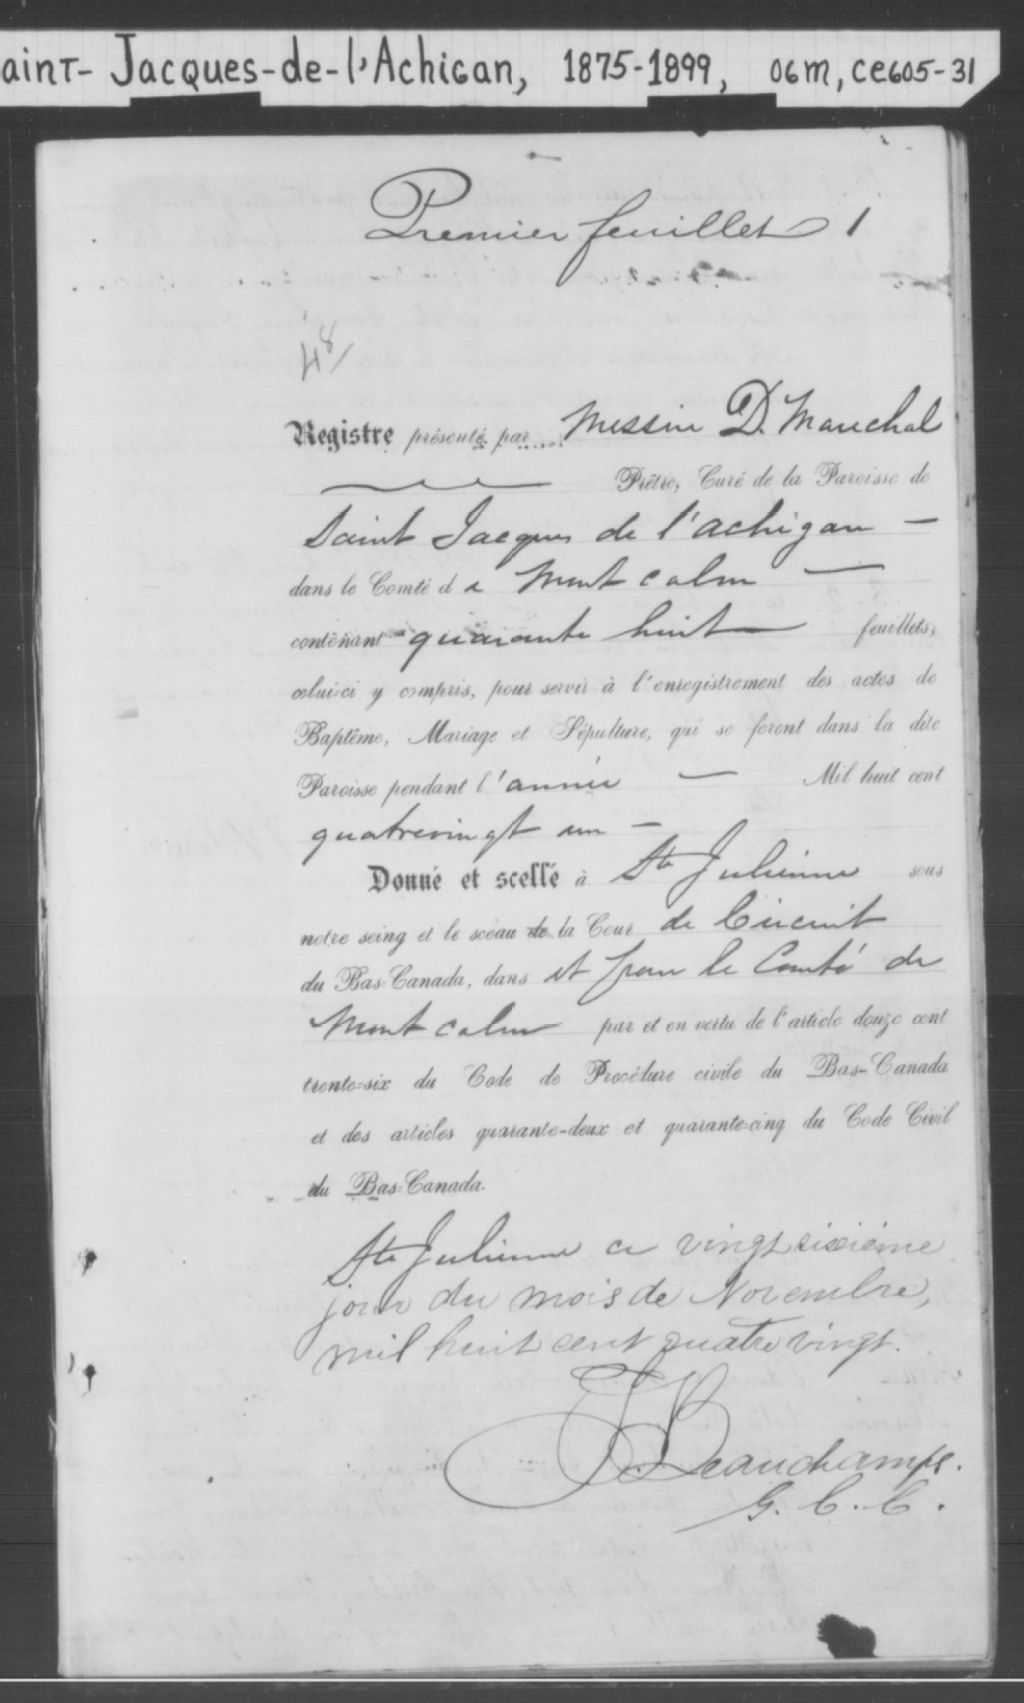 aint-Jacques-de-l'Achigan, 1875-1899, 06m, ce605-31
Premier feuillet 1
48/
Registre présenté par Messire D. Marechal
Prêtre, Curé de la Paroisse de
Saint Jacques de l'achigan —
dans le Comté de Mont calm —
contenant quarante huit feuillets,
celui-ci y compris, pour servir à l'enregistrement des actes de
Baptême, Mariage et Sépulture, qui se feront dans la dite
Paroisse pendant l'année — Mil huit cent
quatrevingt un —
Donné et scellé à Ste Julienne sous
notre seing et le sceau de la Cour de Circuit
du Bas-Canada, dans et pour le Comté de
Mont calm par et en vertu de l'article douze cent
trente-six du Code de Procédure civile du Bas-Canada
et des articles quarante-deux et quarante-cinq du Code Civil
du Bas-Canada.
Ste Julienne ce vingt sixième
jour du mois de Novembre,
mil huit cent quatre vingt.
Beauchamp.
G. C. C.